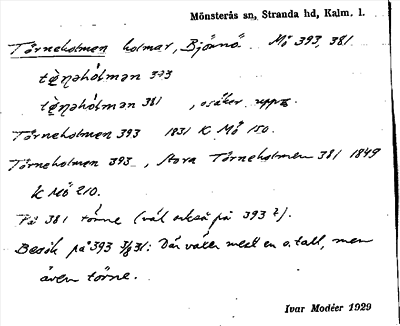 Mönsterås sn, Stranda hd, Kalm. l.
Törneholmen holmar, Björnö. Mö 393, 381.
tö̀ŋəhólmən 393
tö̀ŋəhólmən 381, osäker uppg.
Törneholmen 393 1831 K Mö 150.
Törneholmen 393, Stora Törneholmen 381 1849
K Mö 210.
På 381 törne (väl också på 393?).
Besök på 393: Där växer mest en o. tall, men
även törne.
Ivar Modéer 1929